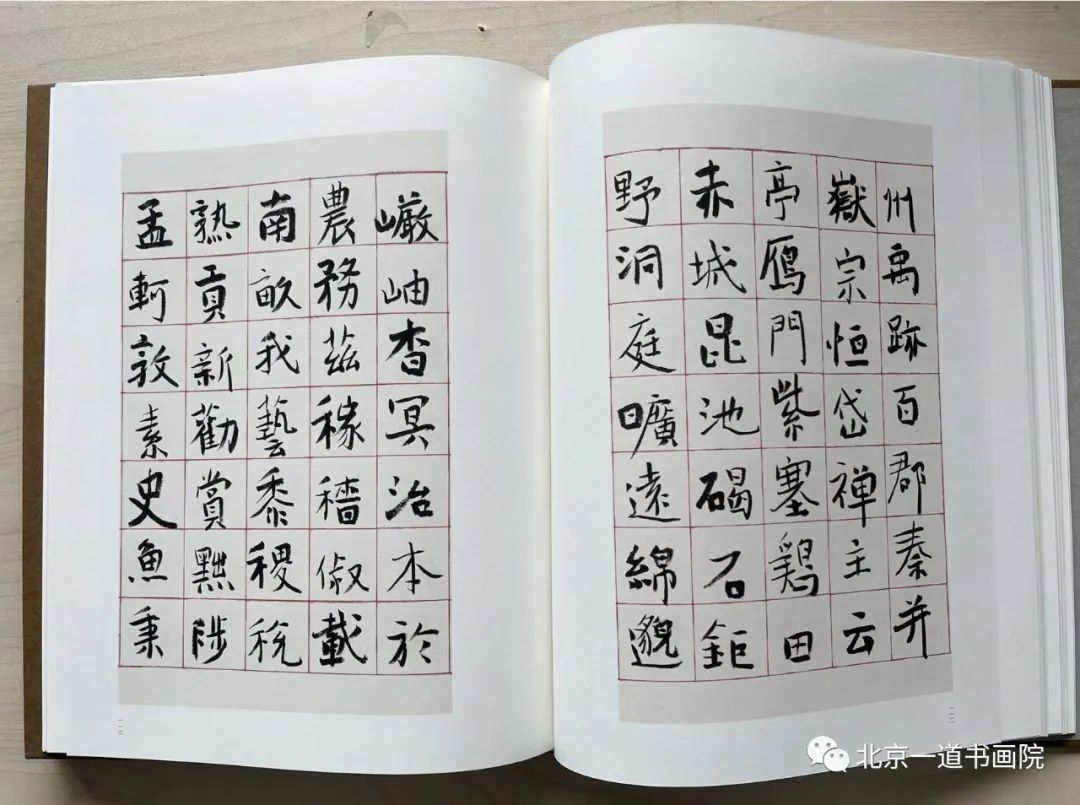 州禹跡百郡秦并
嶽宗恒岱禅主云
亭鴈門紫塞鶏田
赤城昆池碣石鉅
野洞庭曠遠綿邈
二二
巖岫杳冥治本於
農務茲稼穡俶載
南畝我藝黍稷稅
熟貢新勸賞黜陟
孟軻敦素史魚秉
二三
北京一道书画院